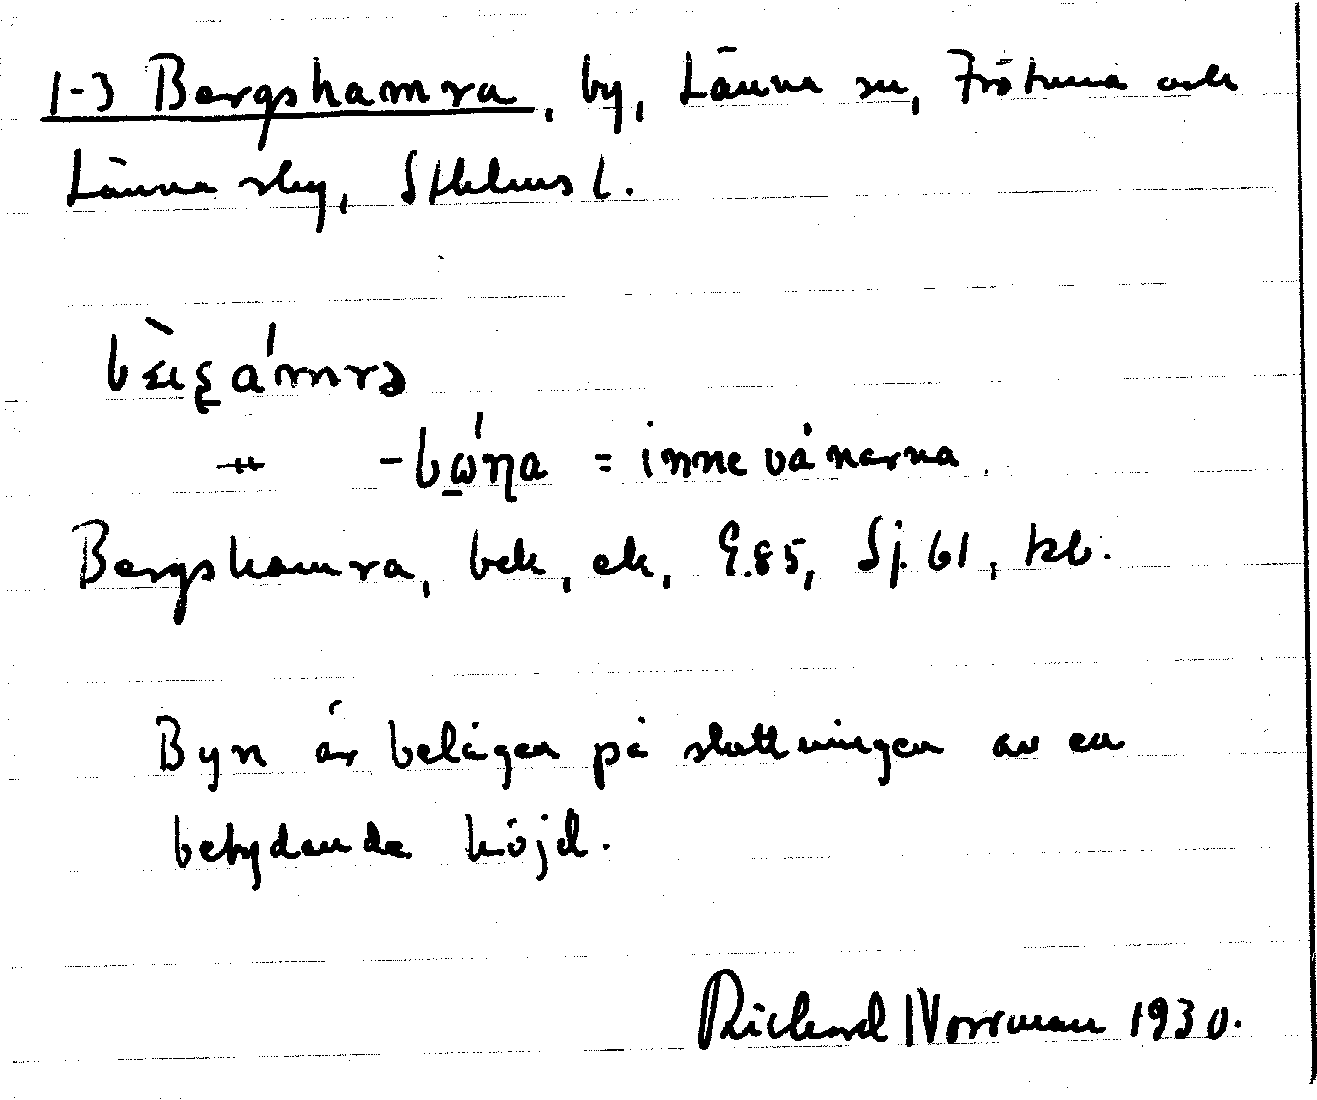 1-3 Bergshamra, by, Länna sn, Frötuna och
Länna skg, Sthlms l.
bɛ̀ιʂámrə
–"– -bώ̲ηa = innevånarna.
Bergshamra, bek, ek, G.85, Sj. 61, kb.
Byn är belägen på sluttningen av en
betydande höjd.
Richard Norrman 1930.